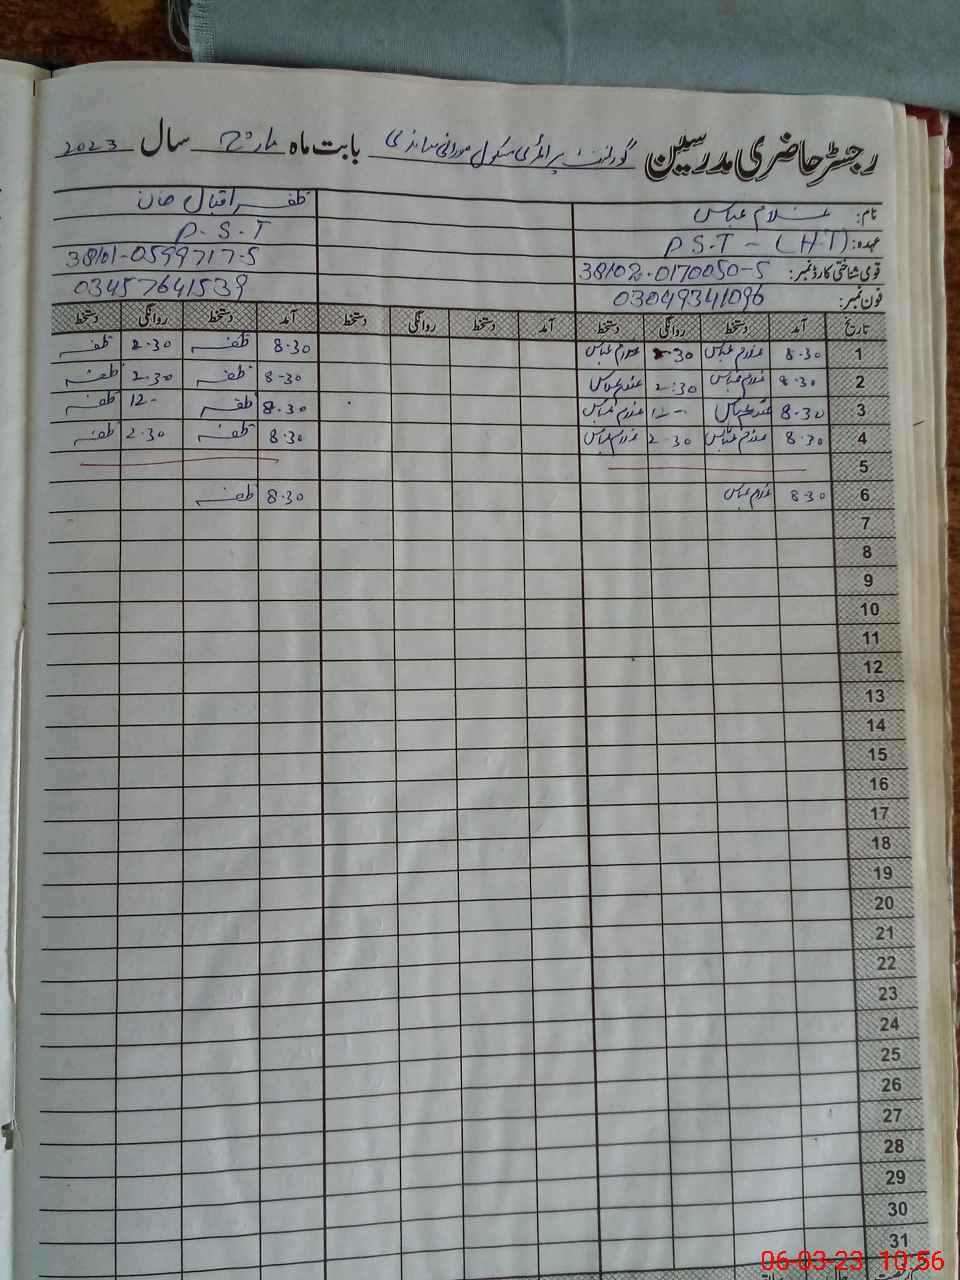 رجسٹر حاضری مدرسین گورنمنٹ پرائمری سکول بابت ماہ مارچ سال 2023
نام: غلام عباس ظفر اقبال خان
عہدہ: P.S.T - (H.T) P.S.T
قومی شناختی کارڈ نمبر: 38102-0170050-5 38101-0599717-5
فون نمبر: 03049341096 03457641539
تاریخ آمد دستخط روانگی دستخط آمد دستخط روانگی دستخط آمد دستخط روانگی دستخط
1 8.30 غلام عباس 2.30 غلام عباس 8.30 ظفر 2.30 ظفر
2 8.30 غلام عباس 2:30 غلام عباس 8-30 ظفر 2.30 ظفر
3 8.30 غلام عباس 12- غلام عباس 8.30 ظفر 12- ظفر
4 8.30 غلام عباس 2.30 غلام عباس 8.30 ظفر 2.30 ظفر
5
6 8.30 غلام عباس 8.30 ظفر
7
8
9
10
11
12
13
14
15
16
17
18
19
20
21
22
23
24
25
26
27
28
29
30
31
06-03-23 10:56